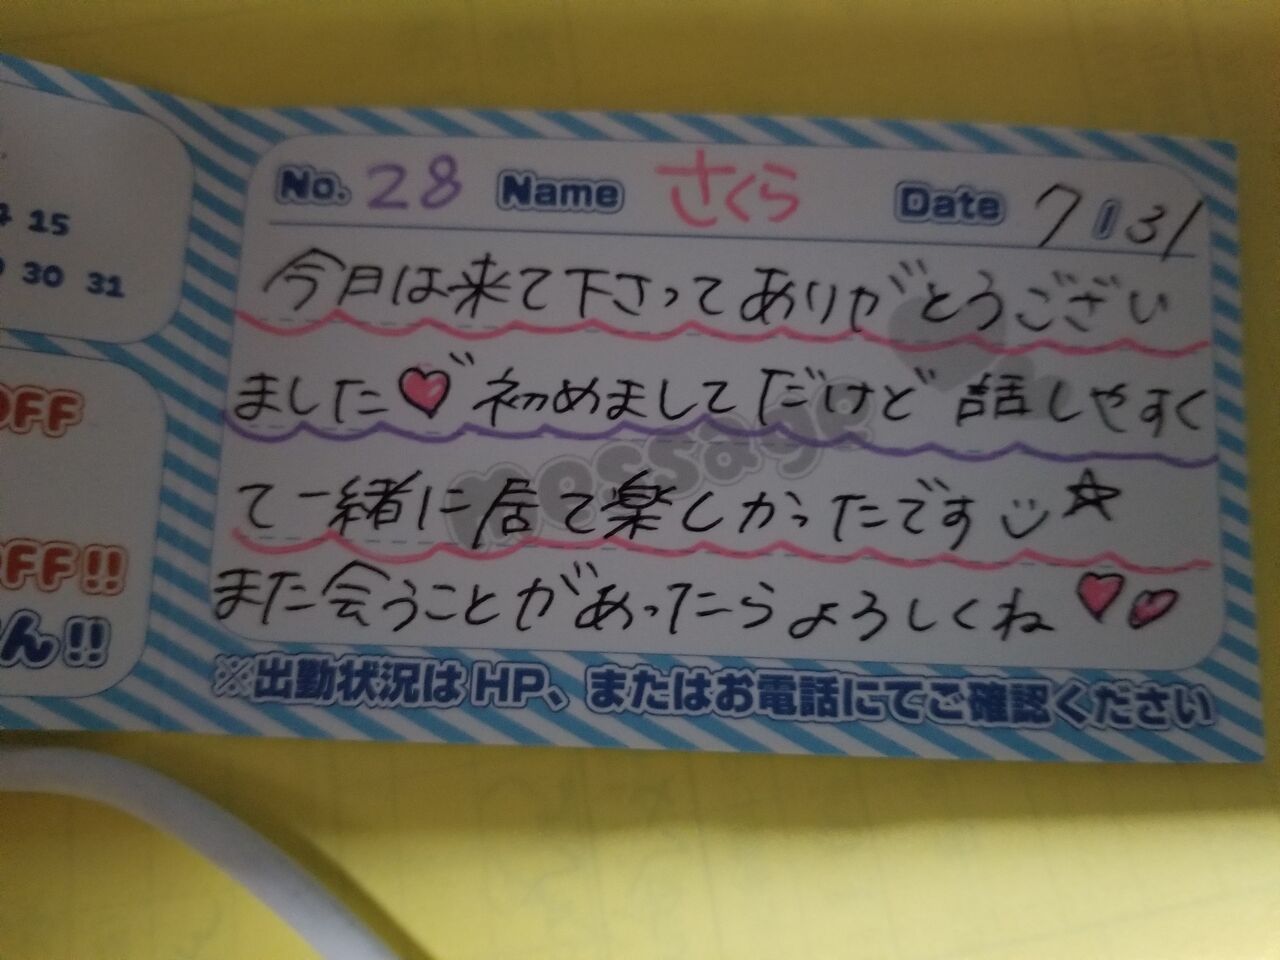 15
30 31
OFF
OFF!!
ん!!
No. 28 Name さくら Date 7/31
今日は来て下さってありがとうござい
ました♥゛初めましてだけど話しやすく
て一緒に居て楽しかったです☆
また会うことがあったらよろしくね♥♥
message
※出勤状況はHP、またはお電話にてご確認ください